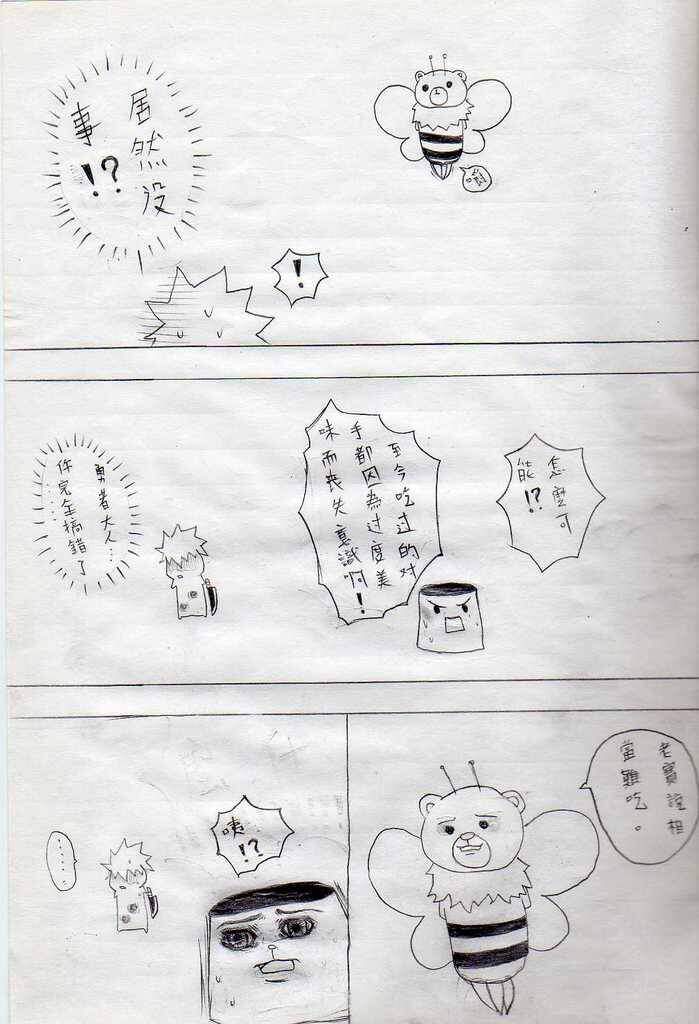 居然没
事!?
!
怎麼可
能!?
至今吃过的对
手都因為过度美
味而喪失意識啊!
勇者大人…
你完全搞錯了
……
老實說相
當難吃。
咦!?
……